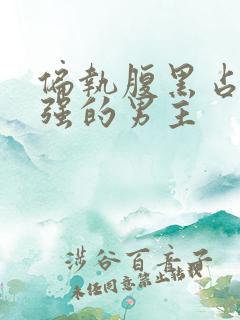 偏执腹黑占
强的男主
涉谷百音子
未经同意禁止转载